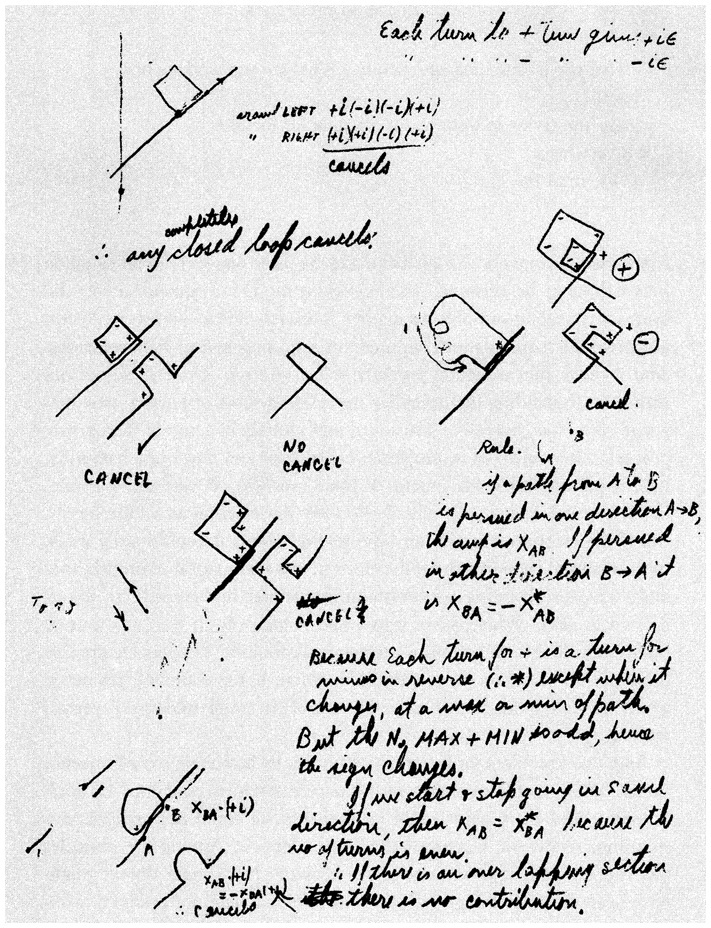 Each turn to + time gives +iε
" " " - " -iε
around LEFT +i(-i)(-i)(+i)
" RIGHT (+i)(+i)(-i)(+i)
cancels
∴ any completely closed loop cancels.
+
-
cancel.
CANCEL
NO
CANCEL
Rule.
B
A
if a path from A to B
is persued in one direction A→B,
the amp is X_AB. If persued
in other direction B→A it
is X_BA = -X*_AB
CANCELS
Because Each turn for + is a turn for
minus in reverse (∴ *) except when it
changes, at a max or min of path.
But the No MAX + MIN is odd, hence
the sign changes.
If we start & stop going in same
direction, then K_AB = X*_BA because the
no of turns is even.
∴ If there is an over lapping section
there is no contribution.
B X_BA·(+i)
A
X_AB·(+i)
∴ cancels